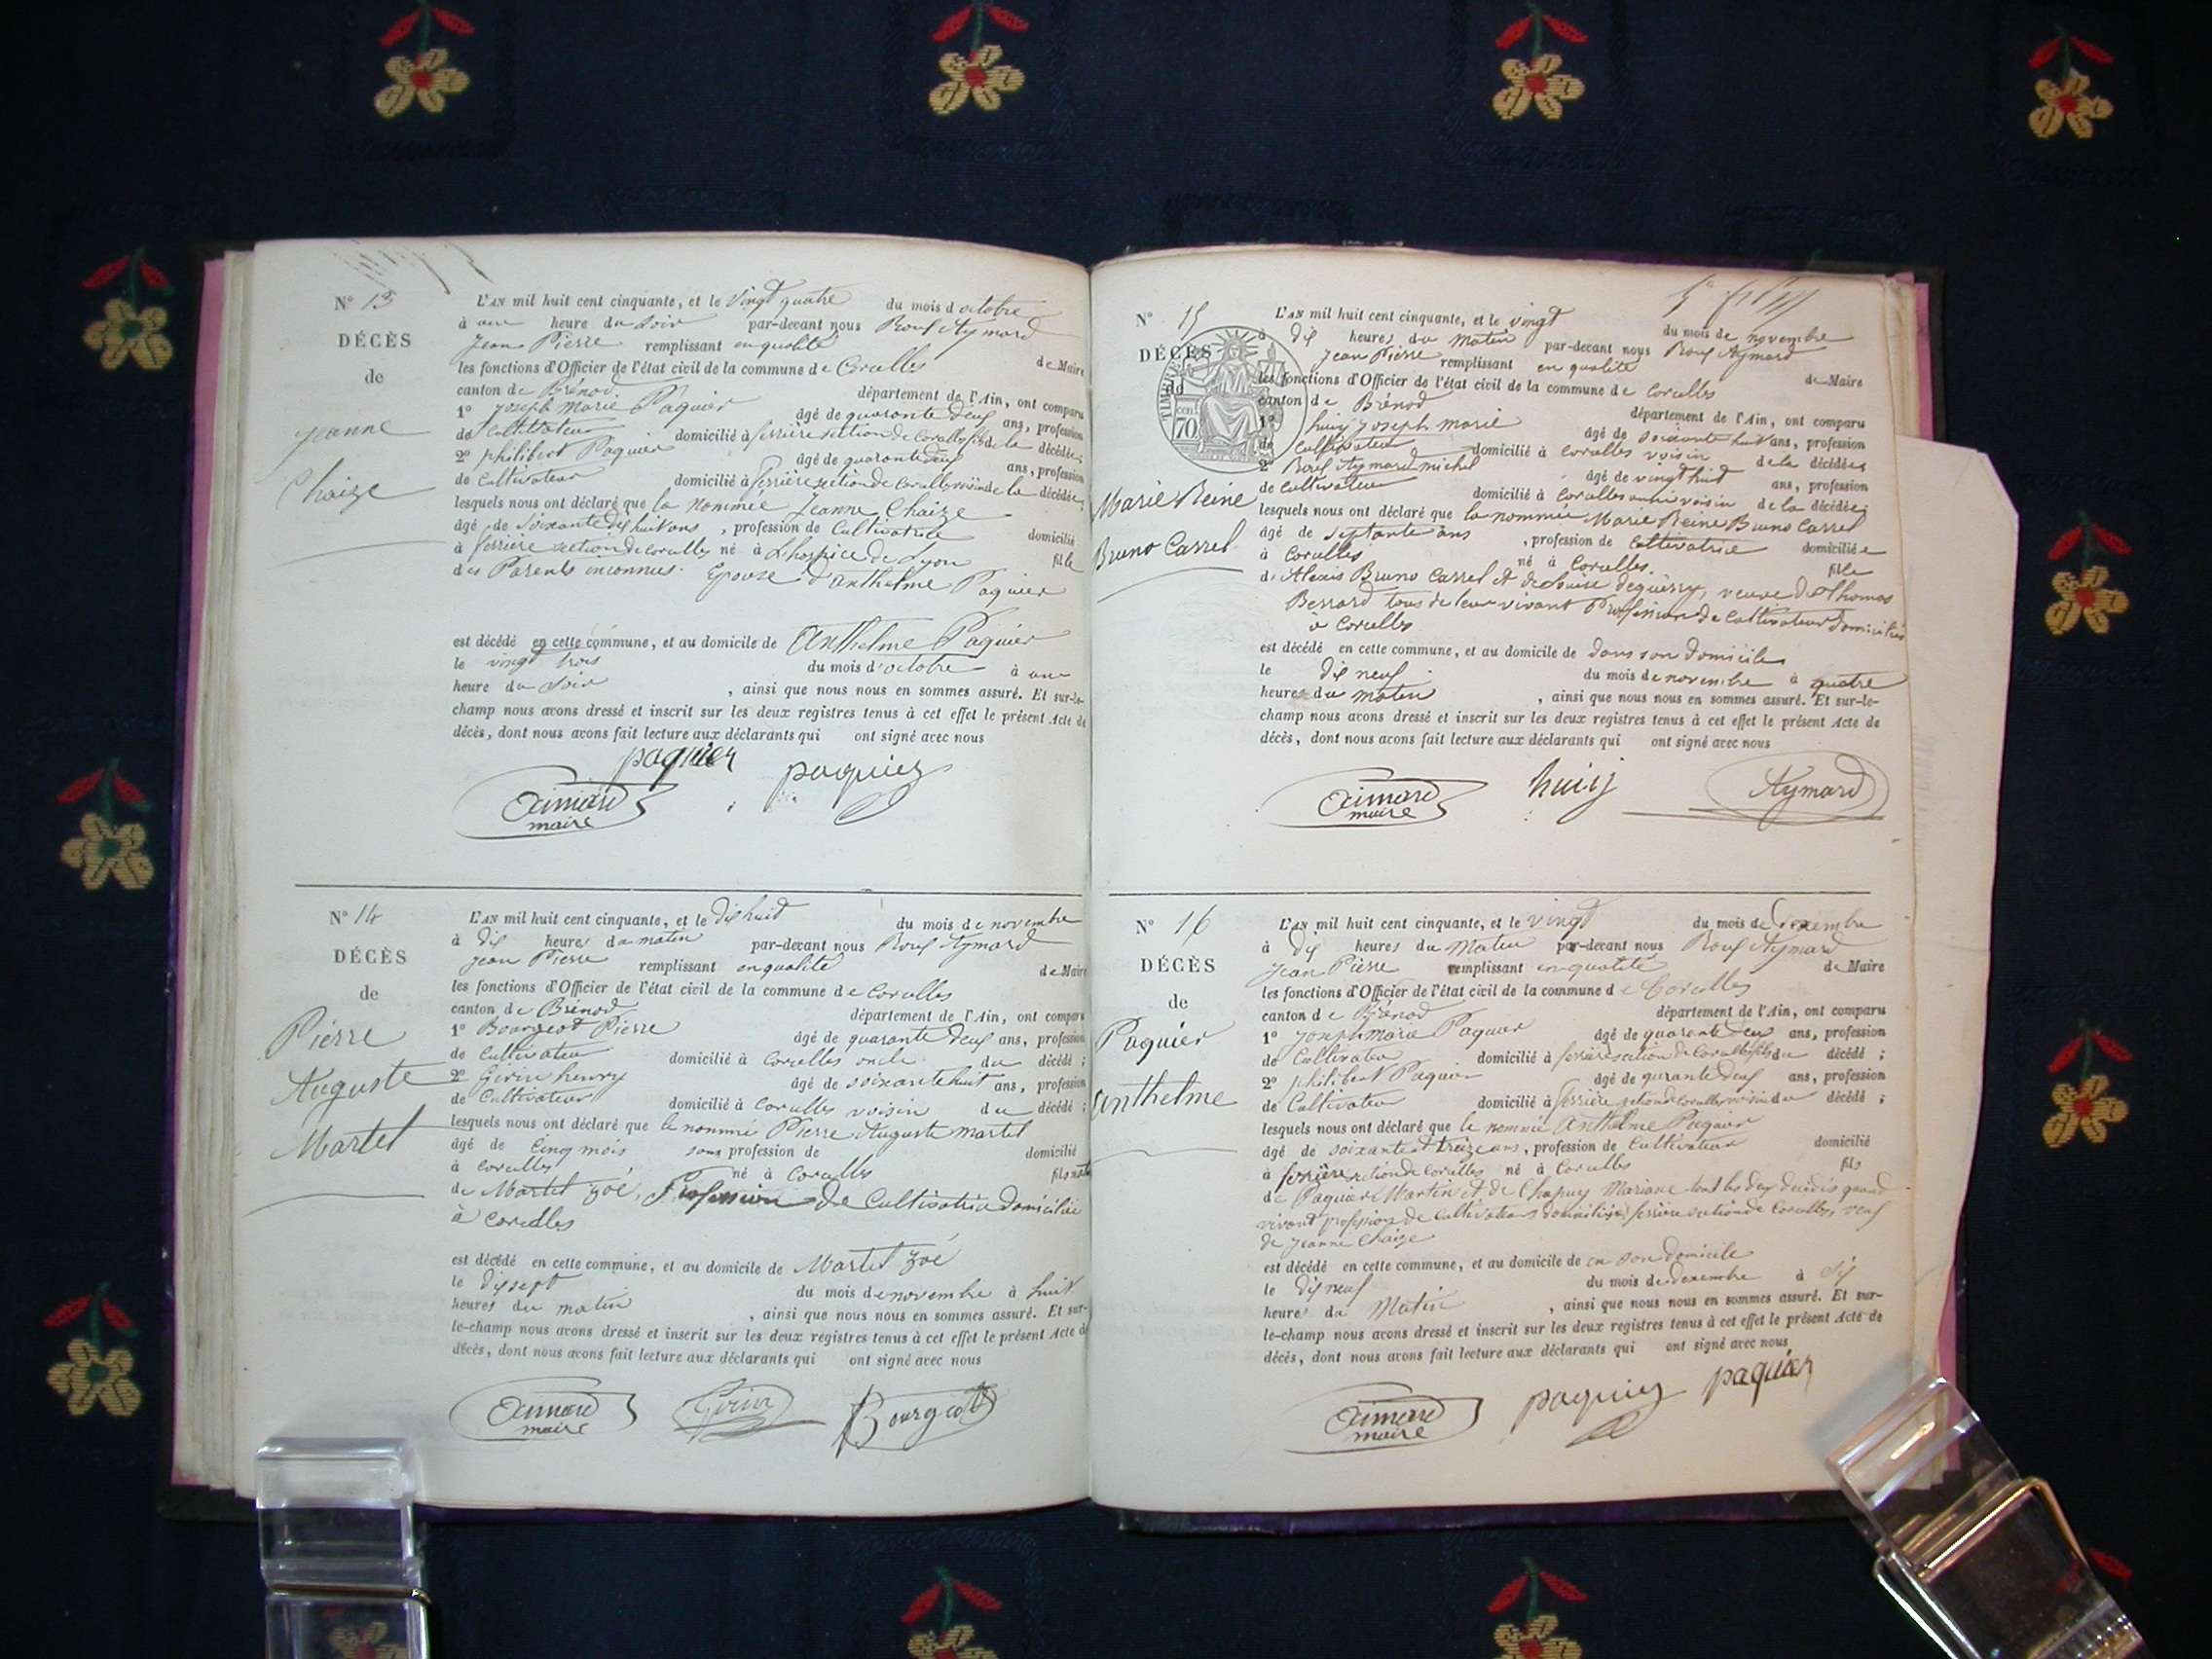 N° 13
DÉCÈS
de
Jeanne
Chaize
L'AN mil huit cent cinquante, et le vingt quatre du mois d'octobre
à une heure du soir par-devant nous Roux Aymard
Jean Pierre remplissant en qualité de Maire
les fonctions d'Officier de l'état civil de la commune de Corcelles
canton de Brénod département de l'Ain, ont comparu
1° Joseph Marie Paquier âgé de quarante deux ans, profession
de Cultivateur domicilié à ferrière section de Corcelles fils de la décédée;
2° philibert Paquier âgé de quarante deux ans, profession
de Cultivateur domicilié à ferrière section de Corcelles voisin de la décédée;
lesquels nous ont déclaré que la nommée Jeanne Chaize
âgé de soixante dix huit ans, profession de Cultivatrice domicilié
à ferrière section de Corcelles né à L'hospice de Lyon fille
des Parents inconnus. Epouse d'anthelme Paquier
est décédé en cette commune, et au domicile de Anthelme Paquier
le vingt trois du mois d'octobre à une
heure du soir, ainsi que nous nous en sommes assuré. Et sur-le-
champ nous avons dressé et inscrit sur les deux registres tenus à cet effet le présent Acte de
décès, dont nous avons fait lecture aux déclarants qui ont signé avec nous
paquier
Aimard paquier
maire
N° 14
DÉCÈS
de
Pierre
Auguste
Martel
L'AN mil huit cent cinquante, et le dix huit du mois de novembre
à dix heures du matin par-devant nous Roux Aymard
Jean Pierre remplissant en qualité de Maire
les fonctions d'Officier de l'état civil de la commune de Corcelles
canton de Brénod département de l'Ain, ont comparu
1° Bourgeot Pierre âgé de quarante deux ans, profession
de Cultivateur domicilié à Corcelles oncle du décédé;
2° Girin henry âgé de soixante huit ans, profession
de Cultivateur domicilié à Corcelles voisin du décédé;
lesquels nous ont déclaré que le nommé Pierre Auguste Martel
âgé de Cinq mois sans profession de domicilié
à Corcelles né à Corcelles fils
de Martel zoé, Profession de Cultivatrice domiciliée
à Corcelles
est décédé en cette commune, et au domicile de Martel zoé
le dix sept du mois de novembre à huit
heures du matin, ainsi que nous nous en sommes assuré. Et sur-
le-champ nous avons dressé et inscrit sur les deux registres tenus à cet effet le présent Acte de
décès, dont nous avons fait lecture aux déclarants qui ont signé avec nous
Aimard Girin Bourgeot
maire
N° 15
DÉCÈS
de
TIMBRE
70
Marie Reine
Bruno Carrel
L'AN mil huit cent cinquante, et le vingt du mois de novembre
à dix heures du matin par-devant nous Roux Aymard
Jean Pierre remplissant en qualité de Maire
les fonctions d'Officier de l'état civil de la commune de Corcelles
canton de Brénod département de l'Ain, ont comparu
1° huiij Joseph marie âgé de soixante huit ans, profession
de Cultivateur domicilié à Corcelles voisin de la décédée;
2° Roux Aymard michel âgé de vingt huit ans, profession
de Cultivateur domicilié à Corcelles aussi voisin de la décédée;
lesquels nous ont déclaré que la nommée Marie Reine Bruno Carrel
âgé de septante ans, profession de Cultivatrice domiciliée
à Corcelles né à Corcelles. fille
d'Alexis Bruno Carrel et de Louise deguerry, veuve de Thomas
Berrard tous de leur vivant Profession de Cultivateur domiciliés
à Corcelles
est décédé en cette commune, et au domicile de dans son domicile
le dix neuf du mois de novembre à quatre
heures du matin, ainsi que nous nous en sommes assuré. Et sur-le-
champ nous avons dressé et inscrit sur les deux registres tenus à cet effet le présent Acte de
décès, dont nous avons fait lecture aux déclarants qui ont signé avec nous
Aimard huiij Aymard
maire
N° 16
DÉCÈS
de
Paquier
Anthelme
L'AN mil huit cent cinquante, et le vingt du mois de Dexembre
à dix heures du Matin par-devant nous Roux Aymard
Jean Pierre remplissant en qualité de Maire
les fonctions d'Officier de l'état civil de la commune de Corcelles
canton de Brénod département de l'Ain, ont comparu
1° Joseph marie Paquier âgé de quarante deux ans, profession
de Cultivateur domicilié à ferrière section de Corcelles fils du décédé;
2° philibert Paquier âgé de qurante deux ans, profession
de Cultivateur domicilié à ferrière section de Corcelles voisin du décédé;
lesquels nous ont déclaré que le nommé Anthelme Paquier
âgé de soixante et treize ans, profession de Cultivateur domicilié
à ferrière section de Corcelles né à Corcelles fils
de Paquier Martin et de Chapuy Mariane tout les deux décédés quand
vivant profession de Cultivateurs domiciliés à ferrière section de Corcelles, veuf
de Jeanne Chaize
est décédé en cette commune, et au domicile de en son domicile
le dix neuf du mois de dexembre à six
heures du Matin, ainsi que nous nous en sommes assuré. Et sur-
le-champ nous avons dressé et inscrit sur les deux registres tenus à cet effet le présent Acte de
décès, dont nous avons fait lecture aux déclarants qui ont signé avec nous
Aimard paquier paquier
maire